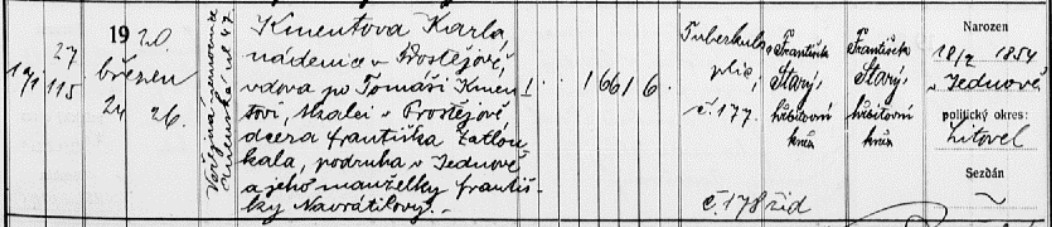 27
115
1920.
březen
24 26.
Veřejná nemocnice
Kmentova Karla,
nádenice v Prostějově,
vdova po Tomáši Kmen-
tovi, tkalci v Prostějově,
dcera Františka Zatlou-
kala, podruha v Jednově
a jeho manželky Františ-
ky Navrátilovy.-
1
1 66 1 6.
Tuberkul.
plic,
č. 177.
č. 178 žid
František
Starý,
hřbitovní
kněz
František
Starý,
hřbitovní
kněz
Narozen
18/2 1854
v Jednově
politický okres:
Litovel
Sezdán
~